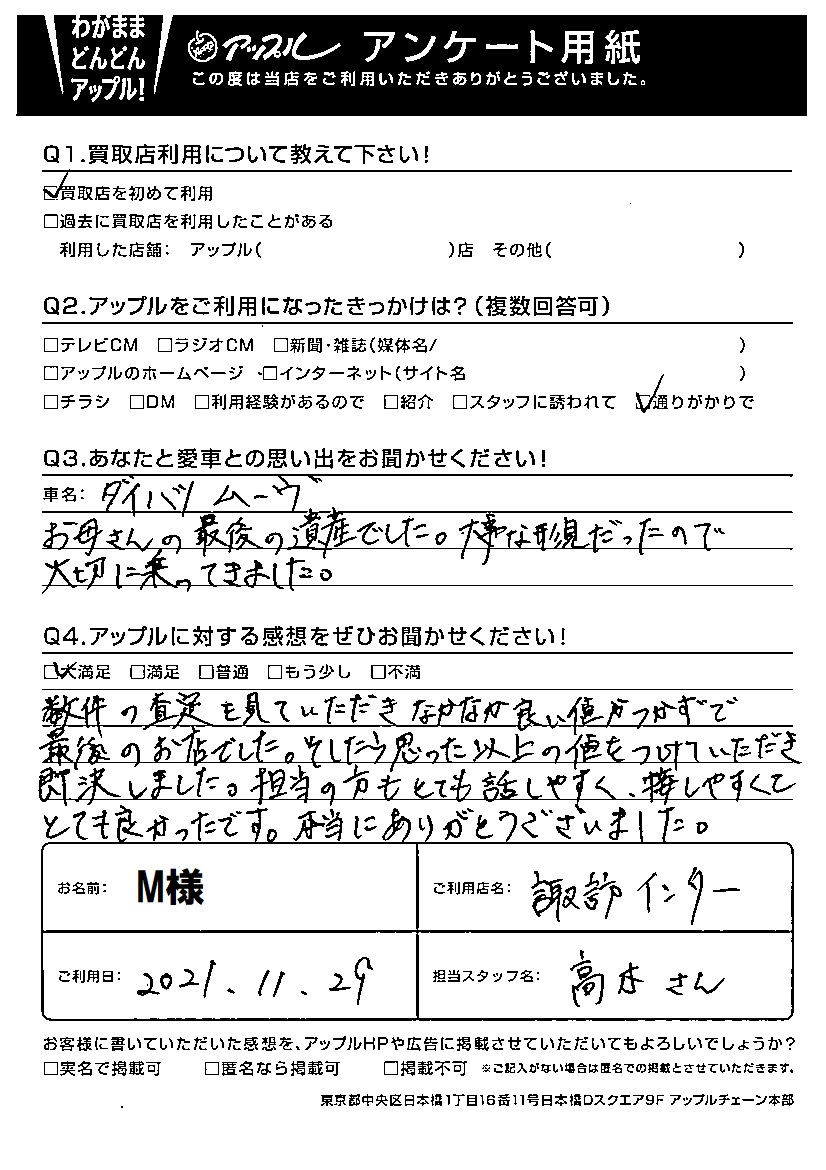 わがまま
どんどん
アップル!
アップル アンケート用紙
この度は当店をご利用いただきありがとうございました。
Q1.買取店利用について教えて下さい!
☑買取店を初めて利用
□過去に買取店を利用したことがある
利用した店舗: アップル( )店 その他( )
Q2.アップルをご利用になったきっかけは?(複数回答可)
□テレビCM □ラジオCM □新聞・雑誌(媒体名/ )
□アップルのホームページ □インターネット(サイト名 )
□チラシ □DM □利用経験があるので □紹介 □スタッフに誘われて ☑通りがかりで
Q3.あなたと愛車との思い出をお聞かせください!
車名: ダイハツ ムーヴ
お母さんの最後の遺産でした。大事な形見だったので
大切に乗ってきました。
Q4.アップルに対する感想をぜひお聞かせください!
☑大満足 □満足 □普通 □もう少し □不満
数件の査定を見ていただきなかなか良い値がつかずで
最後のお店でした。そしたら思った以上の値をつけていただき
即決しました。担当の方もとても話しやすく、接しやすくて
とても良かったです。本当にありがとうございました。
お名前: M様
ご利用店名: 諏訪インター
ご利用日: 2021.11.29
担当スタッフ名: 高木さん
お客様に書いていただいた感想を、アップルHPや広告に掲載させていただいてもよろしいでしょうか?
□実名で掲載可 □匿名なら掲載可 □掲載不可 ※ご記入がない場合は匿名での掲載とさせていただきます。
東京都中央区日本橋1丁目16番11号日本橋Dスクエア9F アップルチェーン本部